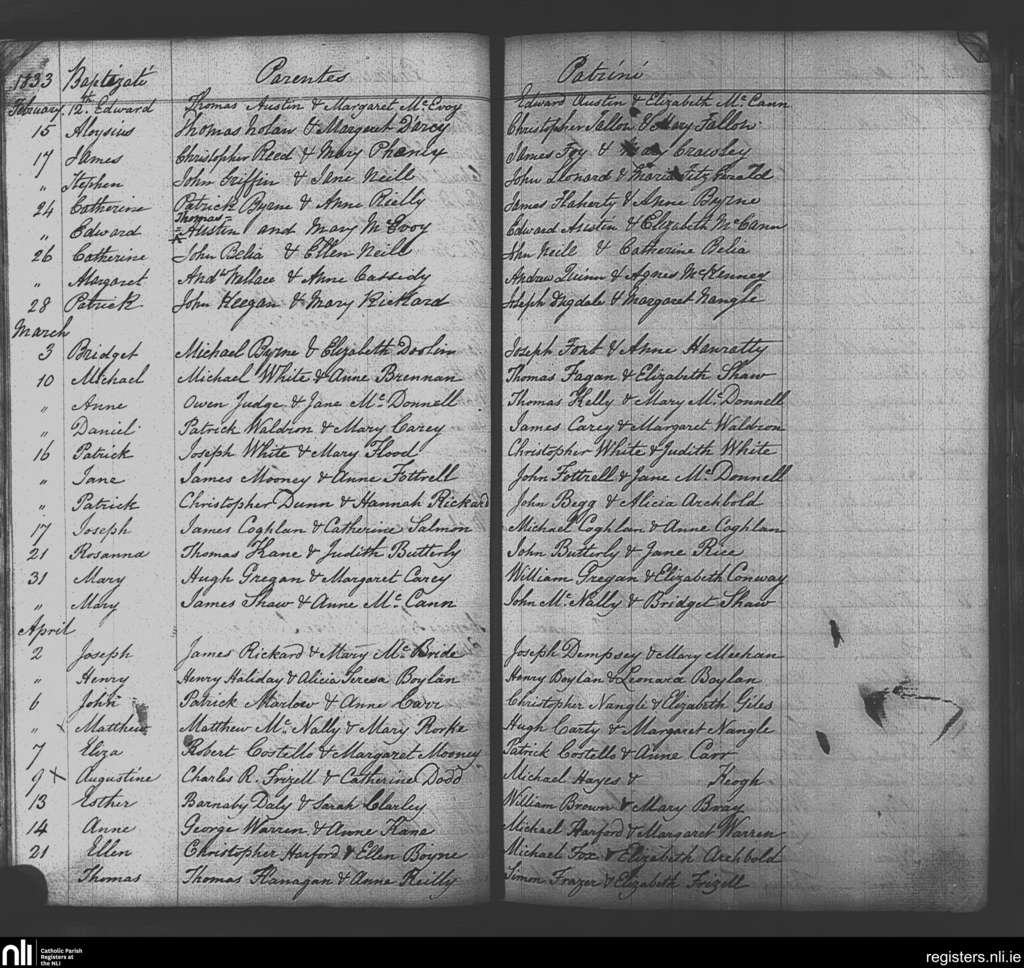 1833 Baptizati Parentes Patrini
February 12th Edward Thomas Austin & Margaret McEvoy Edward Austin & Elizabeth McCann
15 Aloysius Thomas Nolan & Margaret D'arcy Christopher Fallon & Mary Fallon
17 James Christopher Reed & Mary Phenix James Foy & Mary Crawley
" Stephen John Griffin & Jane Neill John Leonard & Maria Fitz Gerald
24 Catherine Patrick Byrne & Anne Reilly James Flaherty & Anne Byrne
Thomas=
" Edward =Austin and Mary McEvoy Edward Austin & Elizabeth McCann
26 Catherine John Belia & Ellen Neill John Neill & Catherine Belia
" Margaret Andw Wallace & Anne Cassedy Andrew Quinn & Agnes McKenney
28 Patrick John Keegan & Mary Rickard Joseph Dugdale & Margaret Nangle
March
3 Bridget Michael Byrne & Elizabeth Doolin Joseph Font & Anne Hanratty
10 Michael Michael White & Anne Brennan Thomas Fagan & Elizabeth Shaw
" Anne Owen Judge & Jane McDonnell Thomas Kelly & Mary McDonnell
" Daniel Patrick Waldron & Mary Carey James Carey & Margaret Waldron
16 Patrick Joseph White & Mary Flood Christopher White & Judith White
" Jane James Mooney & Anne Fottrell John Fottrell & Jane McDonnell
" Patrick Christopher Dunn & Hannah Rickard John Begg & Alicia Archbold
17 Joseph James Coghlan & Catherine Salmon Michael Coghlan & Anne Coghlan
21 Rosanna Thomas Kane & Judith Butterly John Butterly & Jane Rice
31 Mary Hugh Gregan & Margaret Carey William Gregan & Elizabeth Conway
" Mary James Shaw & Anne McCann John McNally & Bridget Shaw
April
2 Joseph James Rickard & Mary McBride Joseph Dempsey & Mary Meehan
" Henry Henry Haliday & Alicia Teresa Boylan Henry Boylan & Leonora Boylan
6 John Patrick Marlow & Anne Carr Christopher Nangle & Elizabeth Giles
" x Matthew Matthew McNally & Mary Rorke Hugh Carty & Margaret Nangle
7 Eliza Robert Costello & Margaret Mooney Patrick Costello & Anne Carr
9 x Augustine Charles R. Frizell & Catherine Dodd Michael Hayes & Keogh
13 Esther Barnaby Daly & Sarah Clarley William Brown & Mary Bray
14 Anne George Warren & Anne Kane Michael Harford & Margaret Warren
21 Ellen Christopher Harford & Ellen Boyne Michael Fox & Elizabeth Archbold
Thomas Thomas Flanagan & Anne Reilly Simon Frazer & Elizabeth Frizell
nli Catholic Parish
Registers at
the NLI
registers.nli.ie